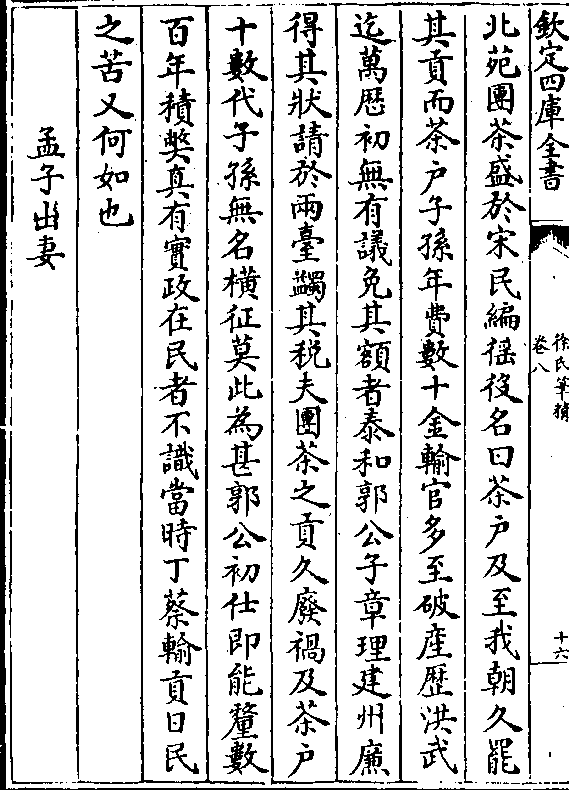 欽定四庫全書
徐氏筆精
卷八
十六
北苑團茶盛於宋民編徭役名曰茶户及至我朝久罷
其貢而茶户子孫年費數十金輸官多至破産歴洪武
迄萬歴初無有議免其額者泰和郭公子章理建州廉
得其狀請於兩臺蠲其税夫團茶之貢久廢禍及茶户
十數代子孫無名橫征莫此為甚郭公初仕即能釐數
百年積弊真有實政在民者不識當時丁蔡輸貢日民
之苦又何如也
孟子出妻